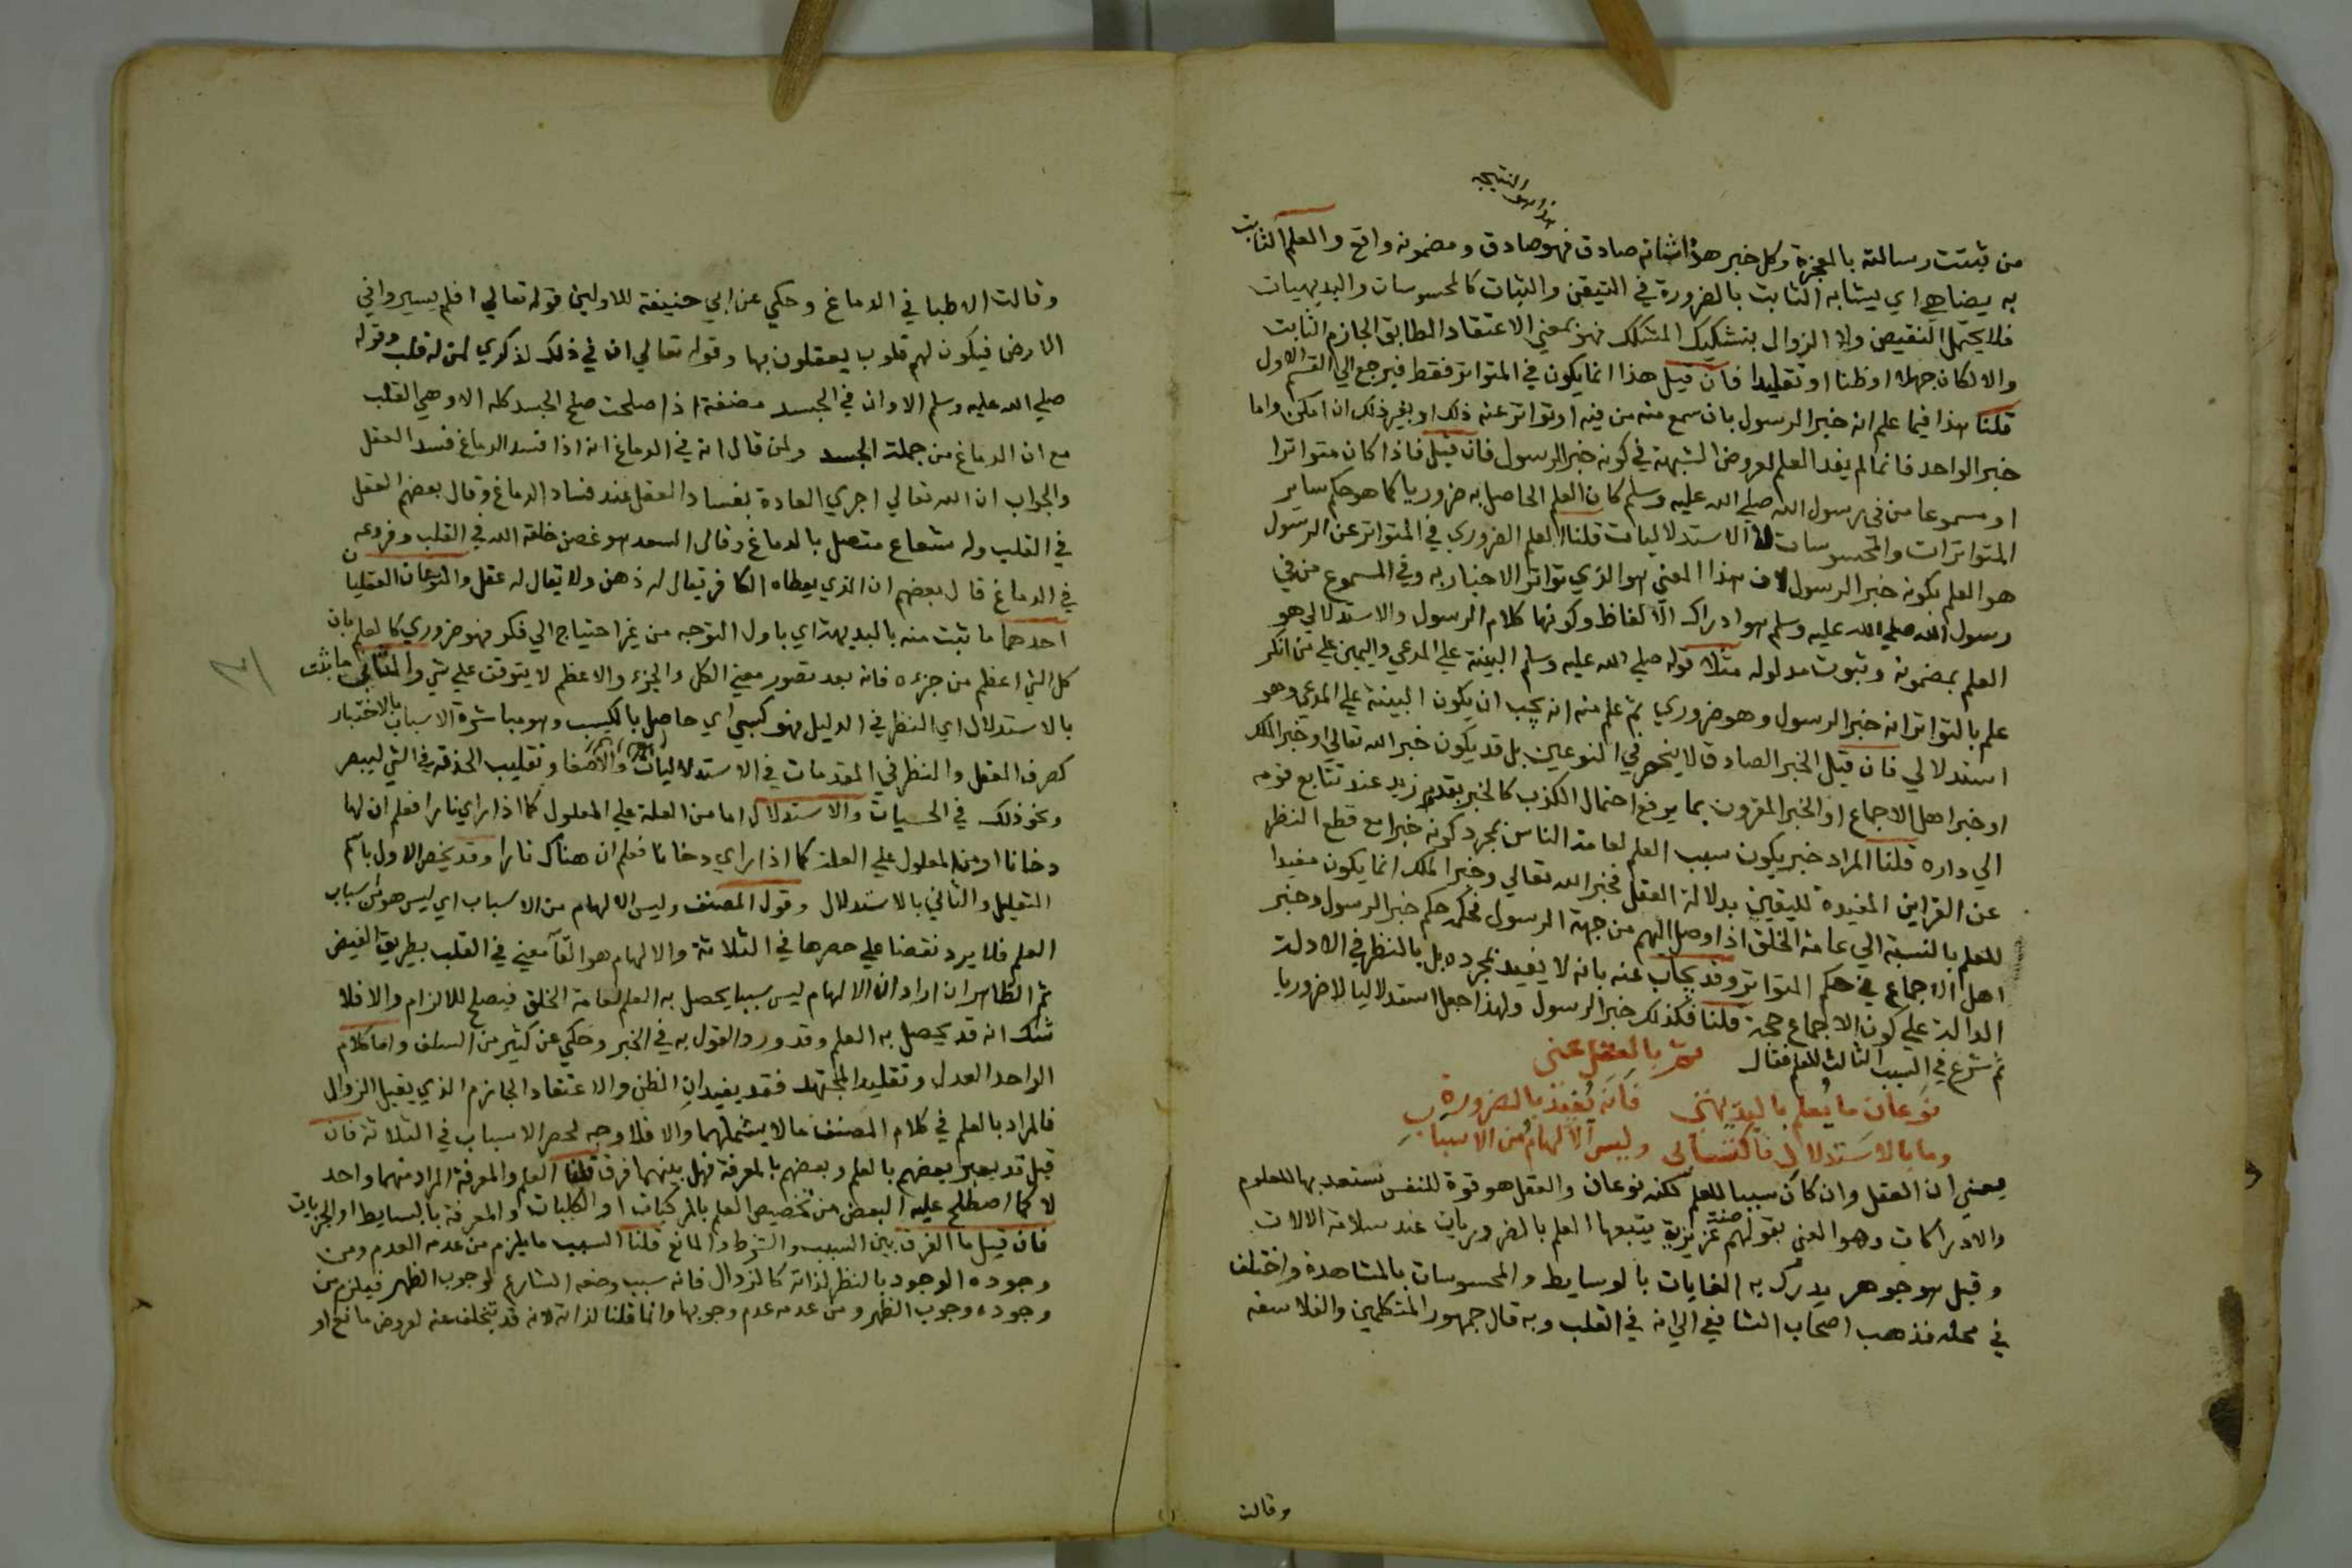 هذا هو النتيجة
من ثبتت رسالته بالمعجزة وكل خبر هذا شانه صادق فهو صادق ومضمونه واقع والعلم الثابت
به يضاهي اي يشابه الثابت بالضرورة في التيقن والثبات كالمحسوسات والبديهيات
فلا يحتمل النقيض ولا الزوال بتشكيك المشكك فهو بمعني الاعتقاد المطابق الجازم الثابت
والا لكان جهلا او ظنا او تقليدا فان قيل هذا انما يكون في المتواتر فقط فيرجع الي القسم الاول
قلنا هذا فيما علم انه خبر الرسول بان سمع منه من فيه او تواتر عنه ذلك او بغير ذلك ان امكن واما
خبر الواحد فانما لم يفد العلم لعروض الشبهة في كونه خبر الرسول فان قيل فاذا كان متواترا
او مسموعا من في رسول الله صلي الله عليه وسلم كان العلم الحاصل به ضروريا كما هو حكم ساير
المتواترات والمحسوسات لا الاستدلاليات قلنا العلم الضروري في المتواتر عن الرسول
هو العلم بكونه خبر الرسول لان هذا المعني هو الذي تواتر الاخبار به وفي المسموع من في
رسول الله صلي الله عليه وسلم هو ادراك الالفاظ وكونها كلام الرسول والاستدلالي هو
العلم بمضمونه وثبوت مدلوله مثلا قوله صلي الله عليه وسلم البينة علي المدعي واليمين علي من انكر
علم بالتواتر انه خبر الرسول وهو ضروري ثم علم منه انه يجب ان يكون البينة علي المدعي وهو
استدلالي فان قيل الخبر الصادق لا ينحصر في النوعين بل قد يكون خبر الله تعالي او خبر الملك
او خبر اهل الاجماع او الخبر المقرون بما يرفع احتمال الكذب كالخبر بقدوم زيد عند تتابع قومه
الي داره قلنا المراد خبر يكون سبب العلم لعامة الناس بمجرد كونه خبرا مع قطع النظر
عن القراين المفيدة لليقين بدلالة العقل فخبر الله تعالي وخبر الملك انما يكون مفيدا
للعلم بالنسبة الي عامة الخلق اذا وصل اليهم من جهة الرسول فحكمه حكم خبر الرسول وخبر
اهل الاجماع في حكم المتواتر وقد يجاب عنه بانه لا يفيد بمجرده بل بالنظر في الادلة
الدالة علي كون الاجماع حجة قلنا فكذلك خبر الرسول ولهذا جعل استدلاليا لا ضروريا
ثم شرع في السبب الثالث للعلم فقال بالعقل عني
نوعان ما يعلم بالبديهتي فانه يفيد بالضرورة
وما بالاستدلال فاكتسابي وليس الالهام من الاسباب
يعني ان العقل وان كان سببا للعلم لكنه نوعان والعقل هو قوة للنفس تستعد بها للعلوم
والادراكات وهو المعني بقولهم صفة غريزية يتبعها العلم بالضروريات عند سلامة الالات
وقيل هو جوهر يدرك به الغايات بالوسايط والمحسوسات بالمشاهدة واختلف
في محله فذهب اصحاب الشافعي الي انه في القلب وبه قال جمهور المتكلمين والفلاسفه
وقالت
وقالت الاطبا في الدماغ وحكي عن ابي حنيفة للاولين قوله تعالي افلم يسيروا في
الارض فيكون لهم قلوب يعقلون بها وقوله تعالي ان في ذلك لذكري لمن له قلب وقوله
صلي الله عليه وسلم الا وان في الجسد مضغة اذا صلحت صلح الجسد كله الا وهي القلب
مع ان الدماغ من جملة الجسد ولمن قال انه في الدماغ انه اذا فسد الدماغ فسد العقل
والجواب ان الله تعالي اجري العادة بفساد العقل عند فساد الدماغ وقال بعضهم العقل
في القلب وله شعاع متصل بالدماغ وقال السعد هو غصن خلقه الله في القلب وفروعه
في الدماغ قال بعضهم ان الذي يعطاه الكافر يقال له ذهن ولا يقال له عقل والنوعان العقليان
احدهما ما ثبت منه بالبديهة اي باول التوجه من غير احتياج الي فكر فهو ضروري كالعلم بان
كل الشي اعظم من جزءه فانه بعد تصور معني الكل والجزء والاعظم لا يتوقف علي شي والثاني ما ثبت
بالاستدلال اي النظر في الدليل فهو كسبي اي حاصل بالكسب وهو مباشرة الاسباب بالاختيار
كصرف العقل والنظر في المقدمات في الاستدلاليات والاصغا وتقليب الحدقة في الشي ليبصر
ونحو ذلك في الحسيات والاستدلال اما من العلة علي المعلول كما اذا راي نارا فعلم ان لها
دخانا او من المعلول علي العلة كما اذا راي دخانا فعلم ان هناك نارا وقد يخص الاول باسم
التعليل والثاني بالاستدلال وقول المصنف وليس الالهام من الاسباب اي ليس هو من اسباب
العلم فلا يرد نقضا علي حصرها في الثلاثة والالهام هو القآ معني في القلب بطريق الفيض
ثم الظاهر ان اراد ان الالهام ليس سببا يحصل به العلم لعامة الخلق فيصلح للالزام والا فلا
شك انه قد يحصل به العلم وقد ورد القول به في الخبر وحكي عن كثير من السلف واما كلام
الواحد العدل وتقليد المجتهد فقد يفيدان الظن والاعتقاد الجازم الذي يقبل الزوال
فالمراد بالعلم في كلام المصنف ما لا يشملهما والا فلا وجه لحصر الاسباب في الثلاثة فان
قيل قد يعبر بعضهم بالعلم وبعضهم بالمعرفة فهل بينهما فرق قلنا العلم والمعرفة المراد منهما واحد
لا كما اصطلح عليه البعض من تخصيص العلم بالمركبات او الكليات والمعرفة بالبسايط او الجزييات
فان قيل ما الفرق بين السبب والشرط والمانع قلنا السبب ما يلزم من عدمه العدم ومن
وجوده الوجود بالنظر لذاته كالزوال فانه سبب وضعه الشارع لوجوب الظهر فيلزم من
وجوده وجوب الظهر ومن عدمه عدم وجوبها وانما قلنا لذاته لانه قد يتخلف عنه لعروض مانع او